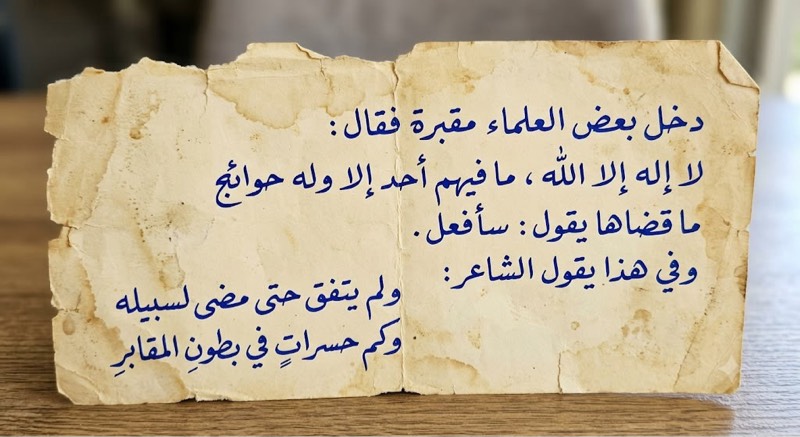 دخل بعض العلماء مقبرة فقال:
لا إله إلا الله، ما فيهم أحد إلا وله حوائج
ما قضاها يقول: سأفعل.
وفي هذا يقول الشاعر:
ولم يتفق حتى مضى لسبيله
وكم حسراتٍ في بطونِ المقابرِ